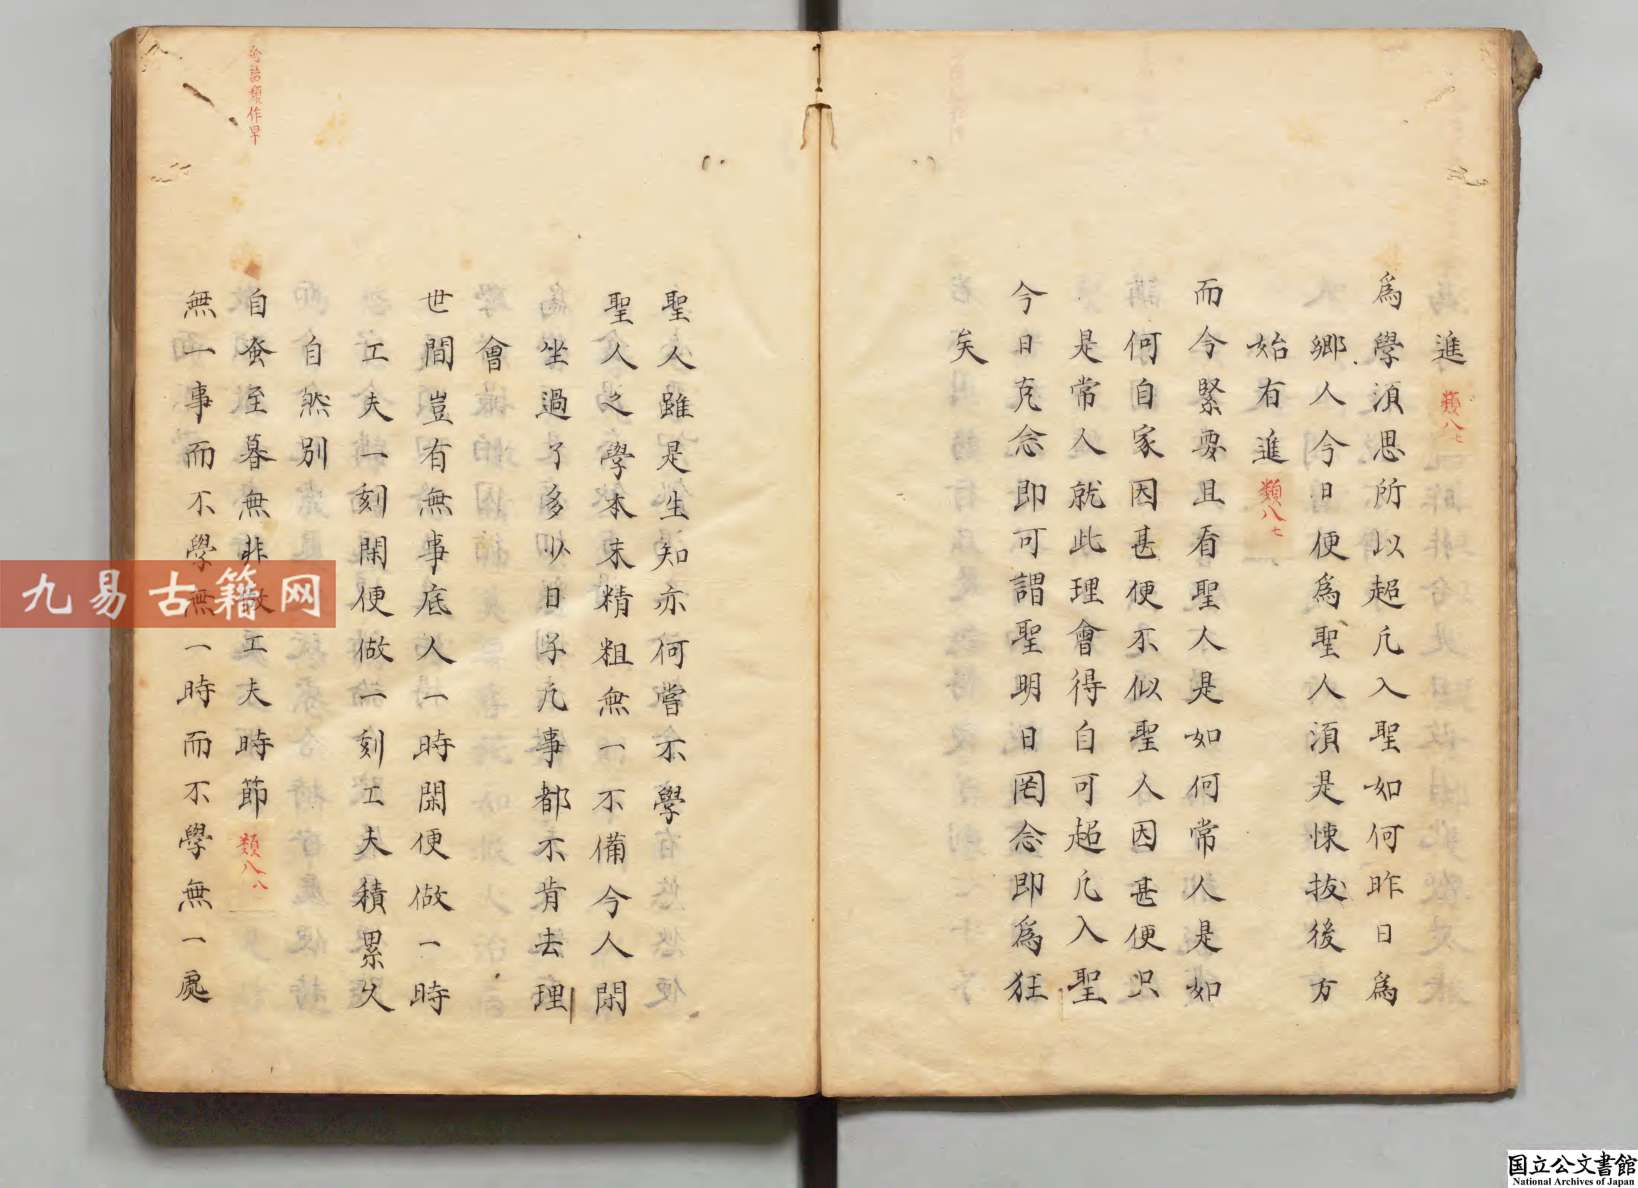 進 類八七
爲學須思所以超凡入聖如何昨日爲
鄉人今日便爲聖人須是悚拔後方
始有進 類八七
而今緊要且看聖人是如何常人是如
何自家因甚便不似聖人因甚便只
是常人就此理會得自可超凡入聖
今日克念即可謂聖明日罔念即爲狂
矣
聖人雖是生知亦何嘗不學
聖人之學本末精粗無一不備今人閑
坐過了多少日子凡事都不肯去理
會
世間豈有無事底人一時閑便做一時
工夫一刻閑便做一刻工夫積累久
自然別
自蚤至暮無非做工夫時節 類八八
無一事而不學無一時而不學無一處
語類作早
九易古籍网
国立公文書館
National Archives of Japan